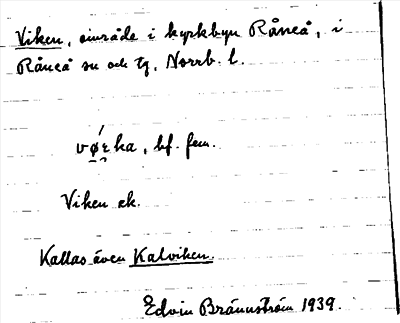 Viken, område i kyrkbyn Råneå, i
Råneå sn och tg, Norrb. l.
vǿɛka, bf. fem.
Viken ek.
Kallas även Kalviken.
Edvin Brännström 1939.